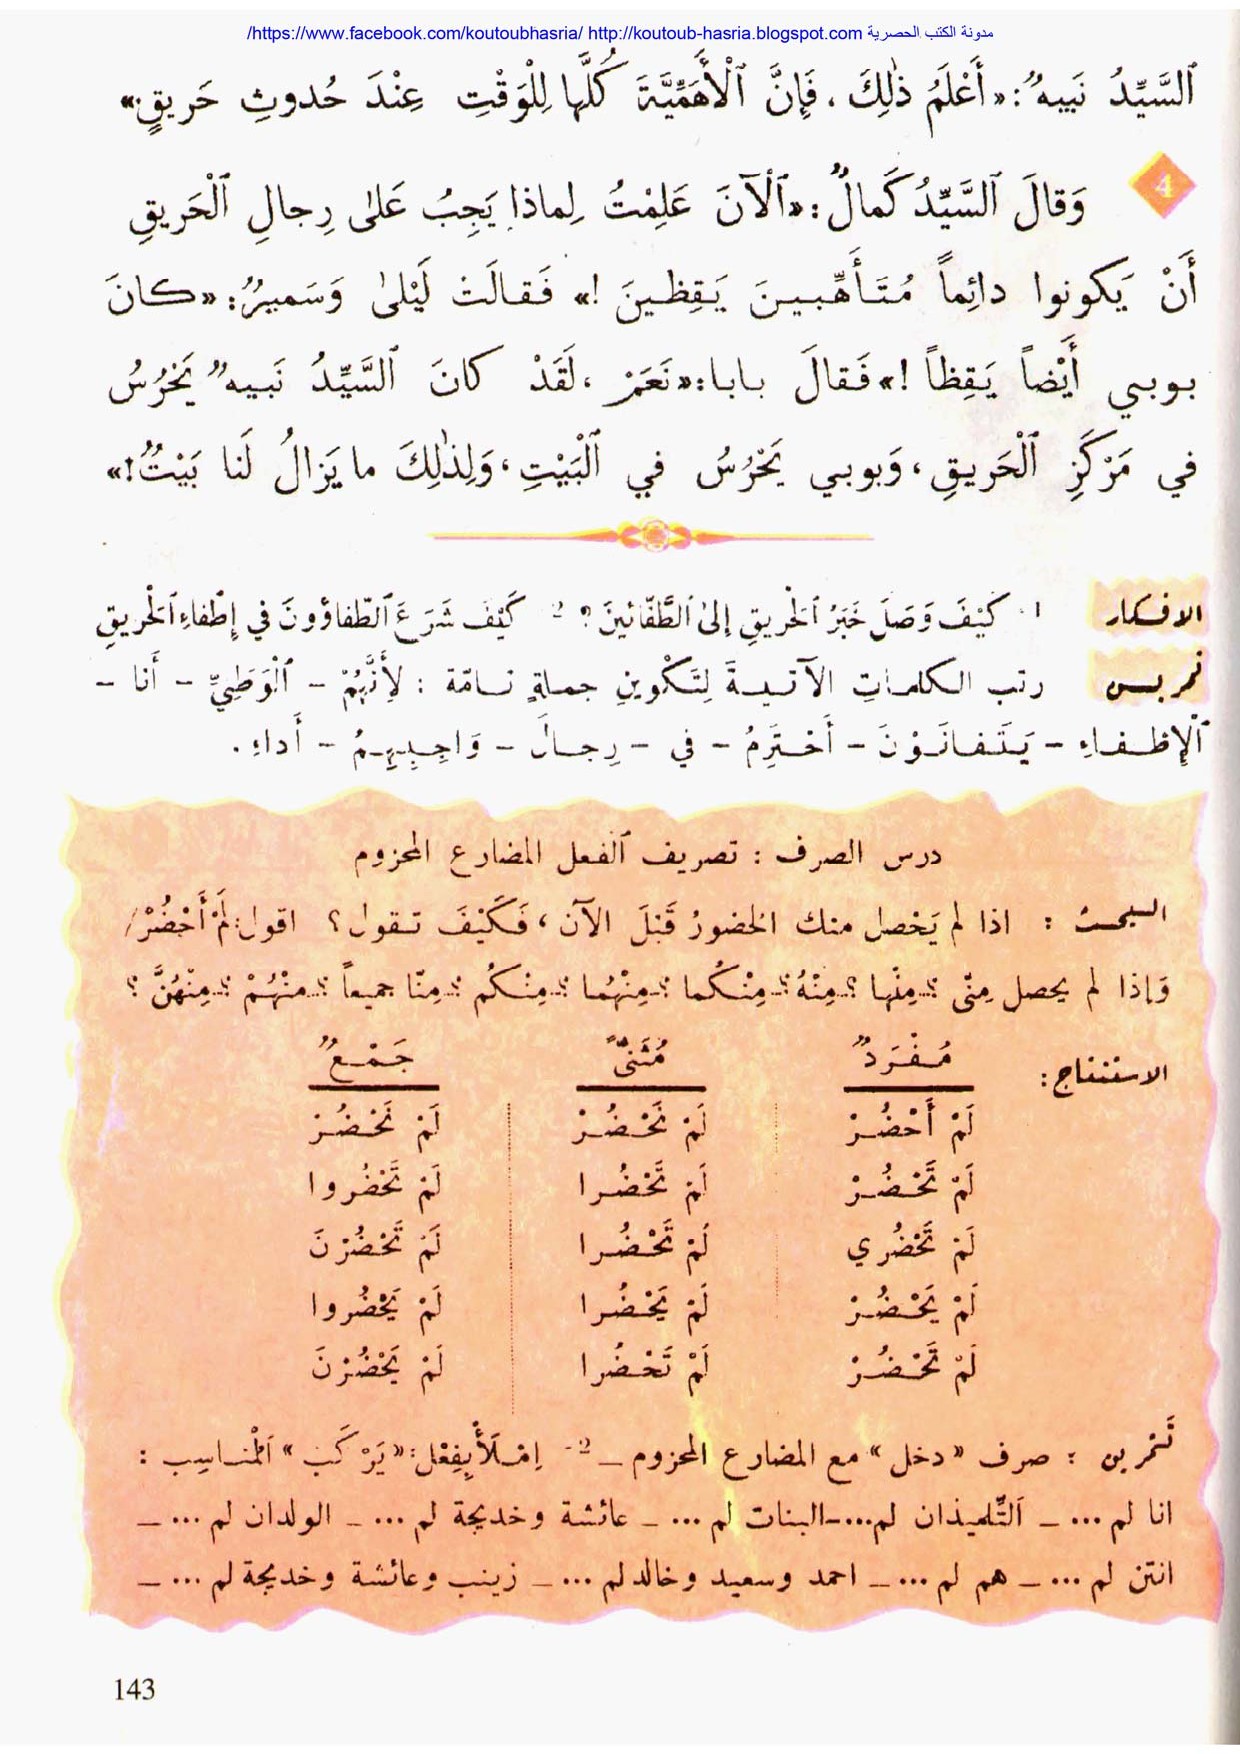 /https://www.facebook.com/koutoubhasria/ http://koutoub-hasria.blogspot.com مدونة الكتب الحصرية
اَلسَّيِّدُ نَبيهٌ: «أَعْلَمُ ذٰلِكَ، فَإِنَّ اَلْأَهَمِّيَّةَ كُلَّها لِلْوَقْتِ عِنْدَ حُدوثِ حَريقٍ.»
4 وَقالَ اَلسَّيِّدُ كَمالٌ: «اَلْآنَ عَلِمْتُ لِماذا يَجِبُ عَلىٰ رِجالِ اَلْحَريقِ
أَنْ يَكونوا دائِماً مُتَأَهِّبينَ يَقِظينَ !» فَقالَتْ لَيْلىٰ وَسَميرٌ: «كانَ
بوبي أَيْضاً يَقِظاً !» فَقالَ بابا: «نَعَمْ، لَقَدْ كانَ اَلسَّيِّدُ نَبيهٌ يَحْرُسُ
في مَرْكَزِ اَلْحَريقِ، وَبوبي يَحْرُسُ في اَلْبَيْتِ، وَلِذٰلِكَ ما يَزالُ لَنا بَيْتٌ!»
الافكار 1 - كَيْفَ وَصَلَ خَبَرُ اَلْحَريقِ إِلىٰ اَلطَّفّائينَ؟ 2 - كَيْفَ شَرَعَ اَلطَّفاؤونَ في إِطْفاءِ اَلْحَريقِ
تمرين رتب الكلمـاتِ الآتيـةَ لِتَكْوينِ جملةٍ تامّة : لِأَنَّهُمْ - اَلْوَطَنِيِّ - أَنا -
اَلْإِطْفـاءِ - يَتَفانَوْنَ - أَحْتَرِمُ - في - رِجالَ - وَاجِبِهِمُ - أَداءِ .
درس الصرف : تصريف اَلفعل المضارع المجزوم
البحث : اذا لم يَحْصل منك الحضورُ قَبْلَ الآن، فَكَيْفَ تقول؟ اقول: لَمْ أَحْضُرْ/
وَإذا لم يحصل مِنّي ؟ـ مِنْها ؟ـ مِنْهُ ؟ـ مِنْكُما ؟ـ مِنْهُما ؟ـ مِنْكُم ؟ـ مِنّا جميعاً ؟ـ مِنْهُمْ ؟ـ مِنْهُنَّ ؟
الاستنتاج: مُفْرَدٌ مُثَنّىً جَمْعٌ
لَمْ أَحْضُرْ لَمْ نَحْضُرْ لَمْ نَحْضُرْ
لَمْ تَحْضُرْ لَمْ تَحْضُرا لَمْ تَحْضُروا
لَمْ تَحْضُري لَمْ تَحْضُرا لَمْ تَحْضُرْنَ
لَمْ يَحْضُرْ لَمْ يَحْضُرا لَمْ يَحْضُروا
لَمْ تَحْضُرْ لَمْ تَحْضُرا لَمْ يَحْضُرْنَ
تَمْرين : صرف «دخل» مع المضارع المجزوم _ 2- اِمْلَأْ بِفِعْل: «يَرْكَب» اَلْمُناسِب :
انا لم ... _ اَلتِّلميذان لم... _ البنات لم ... _ عائشة وخديجة لم ... _ الولدان لم ... _
انتن لم ... _ هم لم ... _ احمد وسعيد وخالد لم ... _ زينب وعائشة وخديجة لم ... _
143